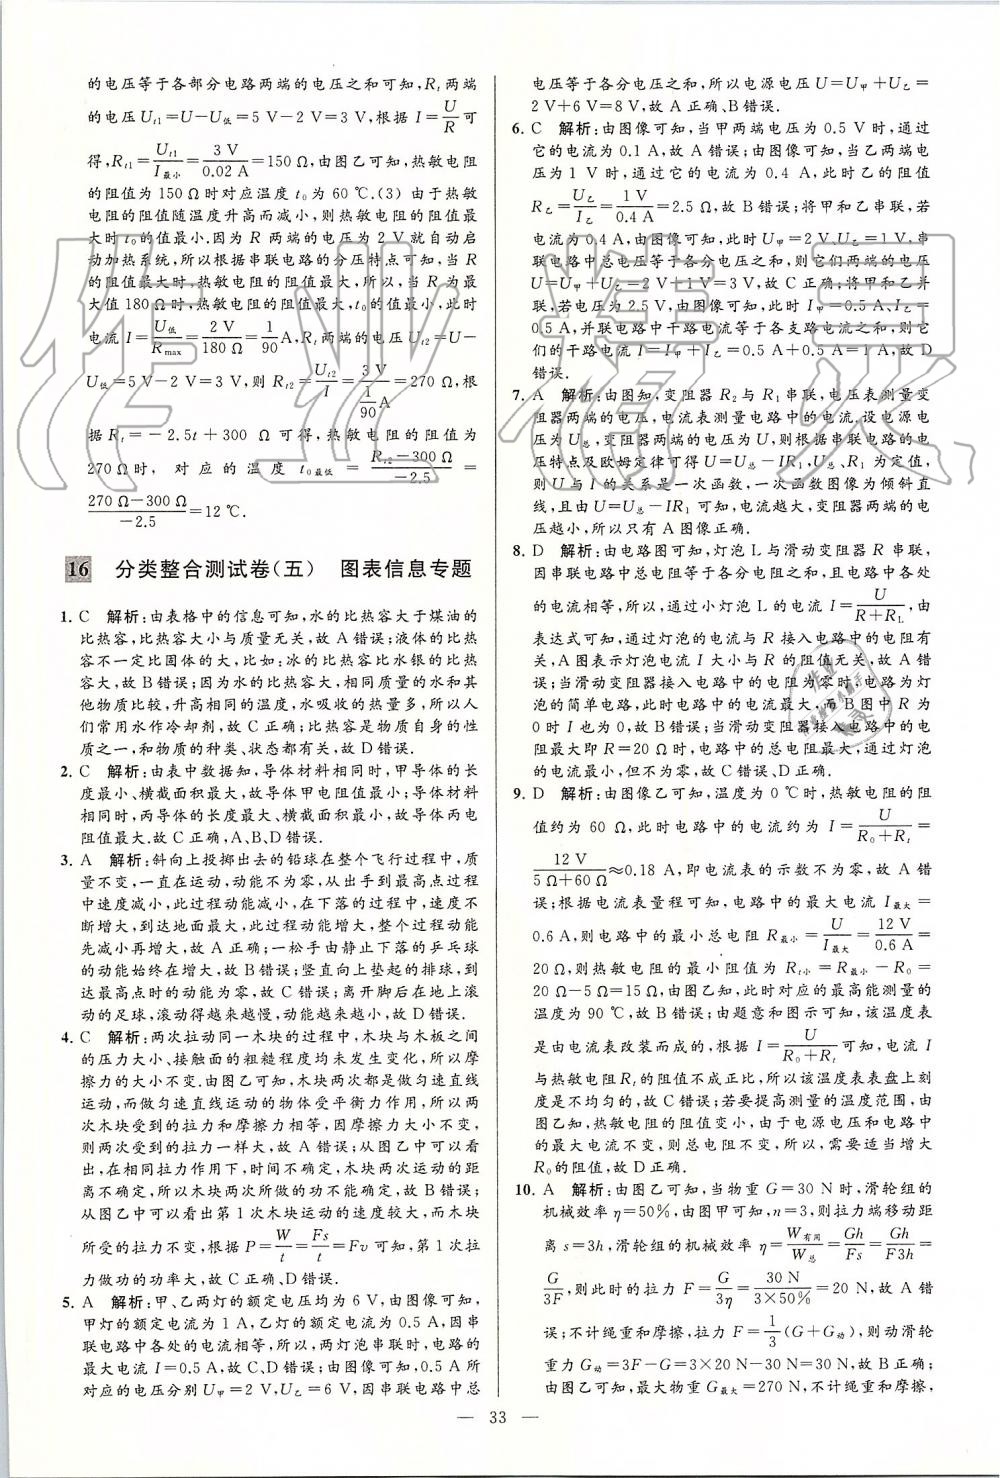 的电压等于各部分电路两端的电压之和可知,Rt两端
的电压Ut1=U-U低=5 V-2 V=3 V,根据 I=U/R可
得,Rt1=Ut1/I最小=3 V/0.02 A=150 Ω,由图乙可知,热敏电阻
的阻值为 150 Ω时对应温度 t0为 60 ℃.(3) 由于热敏
电阻的阻值随温度升高而减小,则热敏电阻的阻值最
大时 t0的值最小.因为 R 两端的电压为 2 V 就自动启
动加热系统,所以根据串联电路的分压特点可知,当 R
的阻值最大时,热敏电阻的阻值最大,所以,当 R为最
大值180 Ω时,热敏电阻的阻值最大,t0的值最小,此时
电流 I=U低/Rmax=2 V/180 Ω=1/90 A,Rt两端的电压Ut2=U-
U低=5 V-2 V=3 V,则 Rt2=Ut2/I=3 V/(1/90 A)=270 Ω,根
据 Rt=-2.5t+300 Ω 可得,热敏电阻的阻值为
270 Ω时,对应的温度 t0最低=(Rt2-300 Ω)/-2.5=
(270 Ω-300 Ω)/-2.5=12 ℃.
16 分类整合测试卷(五) 图表信息专题
1. C 解析:由表格中的信息可知,水的比热容大于煤油的
比热容,比热容大小与质量无关,故 A错误;液体的比热
容不一定比固体的大,比如:冰的比热容比水银的比热
容大,故 B错误;因为水的比热容大,相同质量的水和
其他物质比较,升高相同的温度,水吸收的热量多,所以人
们常用水作冷却剂,故 C正确;比热容是物质自身的性
质之一,和物质的种类、状态都有关,故 D错误.
2. C 解析:由表中数据知,导体材料相同时,甲导体的长
度最小、横截面积最大,故导体甲电阻最小;导体材料
相同时,丙导体的长度最大、横截面积最小,故导体丙电
阻值最大.故 C正确,A、B、D错误.
3. A 解析:斜向上投掷出去的铅球在整个飞行过程中,质
量不变,一直运动,动能不为零,从出手到最高点过程
中速度减小,此过程动能减小,在下落的过程中,速度不
断增大,到达地面最大,此过程动能增大,整个过程动能
先减小再增大,故 A 正确;一松手由静止下落的乒乓球
的动能始终在增大,故 B错误;竖直向上垫起的排球,到
达最高点时的动能为零,故 C错误;离开脚后在地上滚
动的足球,滚动得越来越慢,动能越来越小,故 D错误.
4. C 解析:两次拉动同一木块的过程中,木块与木板之间
的压力大小、接触面的粗糙程度均未发生变化,所以摩
擦力的大小不变.由图乙可知,木块两次都是做匀速直线
运动,而做匀速直线运动的物体受平衡力作用,所以两
次木块受到的拉力和摩擦力相等,因摩擦力大小不变,
则两次受到的拉力一样大,故 A错误;从图乙中可以看
出,在相同拉力作用下,时间不确定,木块两次运动的距
离不确定,所以木块两次所做的功不能确定,故 B错误;
从图乙中可以看出第 1 次木块运动的速度较大,而木块
所受的拉力不变,根据 P=W/t=Fs/t=Fv 可知,第 1 次拉
力做功的功率大,故 C正确、D错误.
5. A 解析:甲、乙两灯的额定电压均为 6 V,由图像可知,
甲灯的额定电流为 1 A,乙灯的额定电流为 0.5 A,因串
联电路中各处的电流相等,故两灯泡串联时,电路的
最大电流 I=0.5 A,故 C、D错误;由图像可知,0.5 A所
对应的电压分别 U甲=2 V,U乙=6 V,因串联电路中总
电压等于各分电压之和,所以电源电压 U=U甲+U乙=
2 V+6 V=8 V,故 A正确、B错误.
6. C 解析:由图像可知,当甲两端电压为 0.5 V 时,通过
它的电流为 0.1 A,故 A错误;由图像可知,当乙两端电
压为 1 V 时,通过它的电流为 0.4 A,此时乙的阻值
R乙=U乙/I乙=1 V/0.4 A=2.5 Ω,故 B错误;将甲和乙串联,若
电流为 0.4 A,由图像可知,此时 U甲=2 V,U乙=1 V,串
联电路中总电压等于各分电压之和,则它们两端的电压
U=U甲+U乙=2 V+1 V=3 V,故 C正确;将甲和乙并
联,若电压为 2.5 V,由图像可知,此时 I甲=0.5 A,I乙=
0.5 A,并联电路中干路电流等于各支路电流之和,则它
们的干路电流 I=I甲+I乙=0.5 A+0.5 A=1 A,故 D
错误.
7. A 解析:由图知,变阻器 R2与 R1串联,电压表测量变
阻器两端的电压,电流表测量电路中的电流.设电源电
压为 U总,变阻器两端的电压为 U,则根据串联电路的电
压特点及欧姆定律可得 U=U总-IR1,U总、R1为定值,
则 U与 I 的关系是一次函数,一次函数图像为倾斜直
线,且由 U=U总-IR1 可知,电流越大,变阻器两端的电
压越小,所以只有 A图像正确.
8. D 解析:由图可知,灯泡 L 与滑动变阻器 R 串联,
因串联电路中总电阻等于各分电阻之和,且电路中各处
的电流相等,所以,通过小灯泡 L 的电流 I=U/(R+RL),由
表达式可知,通过灯泡的电流与 R 接入电路中的电阻有
关,A图表示灯泡电流 I 大小与 R 的阻值无关,故 A错
误;当滑动变阻器接入电路中的电阻为零时,电路为灯
泡的简单电路,此时电路中的电流最大,而 B图中 R 为
0 时 I 也为 0,故 B错误;当滑动变阻器接入电路中的电
阻最大即 R=20 Ω时,电路中的总电阻最大,通过灯泡
的电流最小,但不为零,故 C错误、D正确.
9. D 解析:由图像乙可知,温度为 0 ℃时,热敏电阻的阻
值约为 60 Ω,此时电路中的电流约为 I=U/(R0+Rt)=
12 V/(5 Ω+60 Ω)≈0.18 A,即电流表的示数不为零,故 A 错
误;根据电流表量程可知,电路中的最大电流 I最大=
0.6 A,则电路中的最小总电阻 R最小=U/I最大=12 V/0.6 A=
20 Ω,则热敏电阻的最小阻值为 Rt小=R最小-R0=
20 Ω-5 Ω=15 Ω,由图乙知,此时对应的最高能测量的
温度为 90 ℃,故 B错误;由题意和图示可知,该温度表
是由电流表改装而成的,根据 I=U/(R0+Rt)可知,电流 I
与热敏电阻Rt的阻值不成正比,所以该温度表表盘上刻
度是不均匀的,故 C错误;若要提高测量的温度范围,由
图乙知,热敏电阻的阻值变小,由于电源电压和电路中
的最大电流不变,则总电阻不变,所以,需要适当增大
R0的阻值,故 D正确.
10. A 解析:由图乙可知,当物重 G=30 N 时,滑轮组的
机械效率 η=50%,由图甲可知,n=3,则拉力端移动距
离 s=3h,滑轮组的机械效率 η=W有用/W总=Gh/Fs=Gh/F3h=
G/3F,则此时的拉力 F=G/3η=30 N/(3×50%)=20 N,故 A错
误;不计绳重和摩擦,拉力 F=1/3(G+G动),则动滑轮
重力 G动=3F-G=3×20 N-30 N=30 N,故 B正确;
由图乙可知,最大物重 G最大=270 N,不计绳重和摩擦,
— 33 —